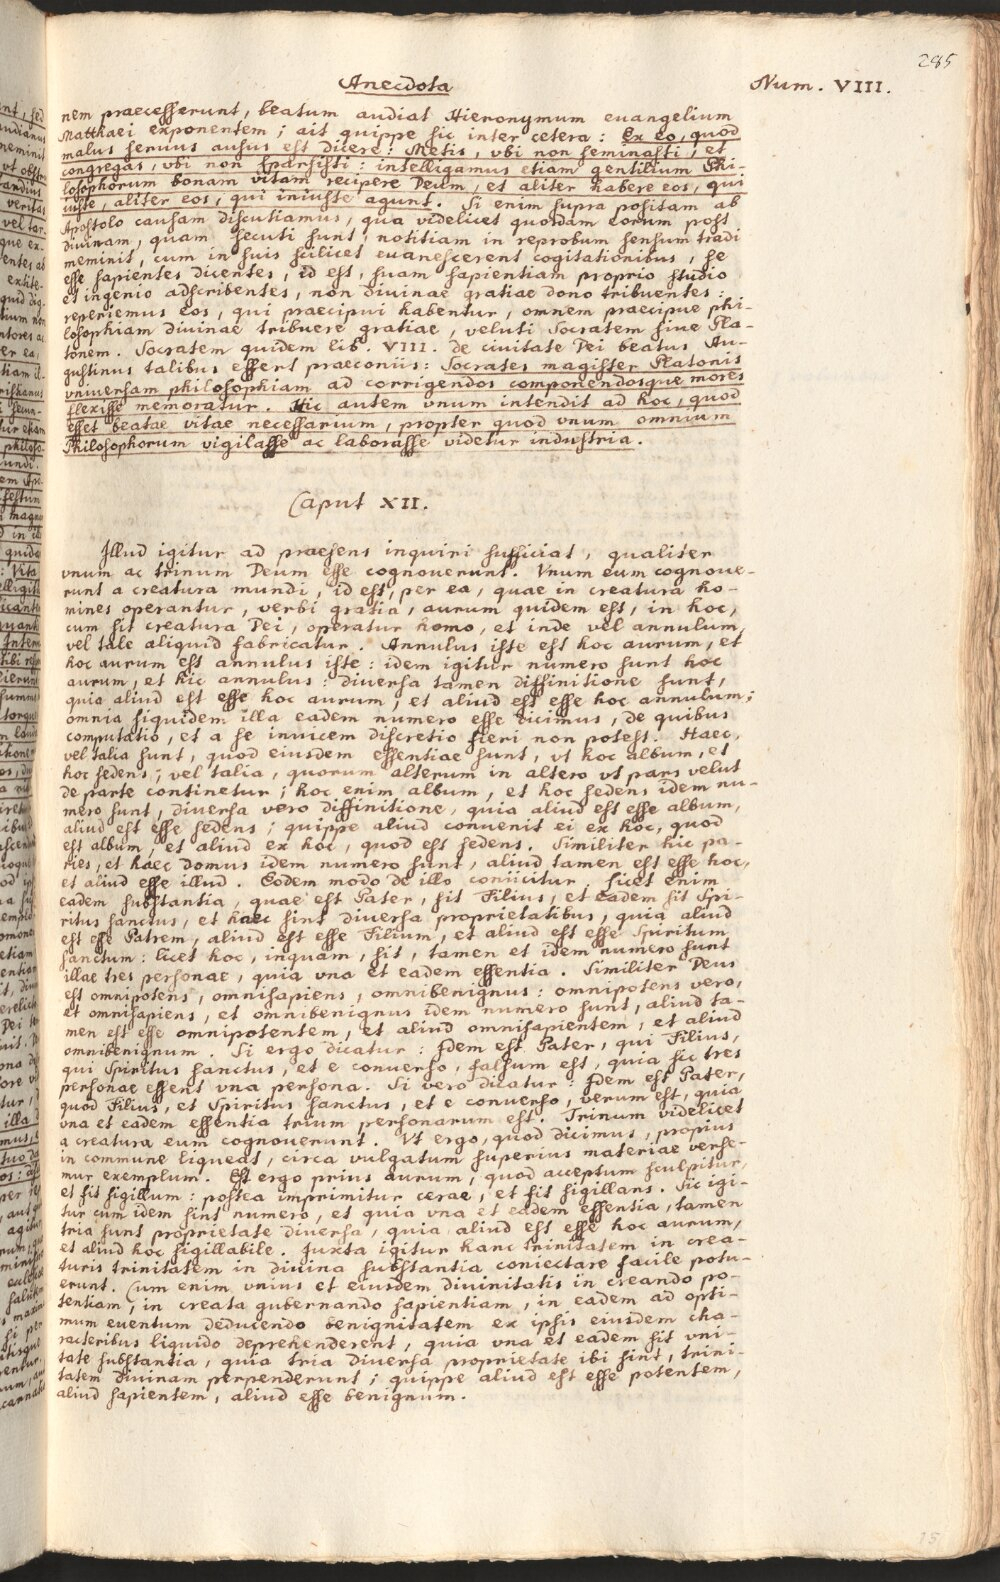 285
Anecdota
Num. VIII.
nem praecesserunt, beatum audiat Hieronymum euangelium
Matthaei exponentem; ait quippe sic inter cetera: Ex eo, quod
malus seruus ausus est dicere: Metis, vbi non seminasti, et
congregas, vbi non sparsisti: intelligamus etiam gentilium Phi-
losophorum bonam vitam recipere Deum, et aliter habere eos, qui
iuste, aliter eos, qui iniuste agunt. Si enim supra positam ab
Apostolo causam discutiamus, qua videlicet quosdam eorum post
diuinam, quam secuti sunt, notitiam in reprobum sensum tradi
meminit, cum in suis scilicet euanescerent cogitationibus, se
esse sapientes dicentes, id est, suam sapientiam proprio studio
et ingenio adscribentes, non diuinae gratiae dono tribuentes:
reperiemus eos, qui praecipui habentur, omnem praecipue phi-
losophiam diuinae tribuere gratiae, veluti Socratem siue Pla-
tonem. Socratem quidem lib. VIII. de ciuitate Dei beatus Au-
gustinus talibus effert praeconiis: Socrates magister Platonis
vniuersam philosophiam ad corrigendos componendosque mores
flexisse memoratur. Hic autem vnum intendit ad hoc, quod
esset beatae vitae necessarium, propter quod vnum omnium
Philosophorum vigilasse ac laborasse videtur industria.
Caput XII.
Illud igitur ad praesens inquiri sufficiat, qualiter
vnum ac trinum Deum esse cognouerunt. Vnum eum cognoue-
runt a creatura mundi, id est, per ea, quae in creatura ho-
mines operantur, verbi gratia, aurum quidem est, in hoc,
cum sit creatura Dei, operatur homo, et inde vel annulum,
vel tale aliquid fabricatur. Annulus iste est hoc aurum, et
hoc aurum est annulus iste: idem igitur numero sunt hoc
aurum, et hic annulus: diuersa tamen diffinitione sunt,
quia aliud est esse hoc aurum, et aliud est esse hoc annulum;
omnia siquidem illa eadem numero esse dicimus, de quibus
computatio, et a se inuicem discretio fieri non potest. Haec,
vel talia sunt, quod eiusdem essentiae sunt, vt hoc album, et
hoc sedens; vel talia, quorum alterum in altero vt pars velut
de parte continetur; hoc enim album, et hoc sedens idem nu-
mero sunt, diuersa vero diffinitione, quia aliud est esse album,
aliud est esse sedens; quippe aliud conuenit ei ex hoc, quod
est album, et aliud ex hoc, quod est sedens. Similiter hic pa-
ries, et haec domus idem numero sunt, aliud tamen est esse hoc,
et aliud esse illud. Eodem modo de illo coniicitur, licet enim
eadem substantia, quae est Pater, sit Filius, et eadem sit Spi-
ritus sanctus, et haec sint diuersa proprietatibus, quia aliud
est esse Patrem, aliud est esse Filium, et aliud est esse Spiritum
sanctum: licet hoc, inquam, sit, tamen et idem numero sunt
illae tres personae, quia vna et eadem essentia. Similiter Deus
est omnipotens, omnisapiens, omnibenignus: omnipotens vero,
et omnisapiens, et omnibenignus idem numero sunt, aliud ta-
men est esse omnipotentem, et aliud omnisapientem, et aliud
omnibenignum. Si ergo dicatur: Idem est Pater, qui Filius,
qui Spiritus sanctus, et e conuerso, falsum est, quia sic tres
personae essent vna persona. Si vero dicatur: Idem est Pater,
quod Filius, et Spiritus sanctus, et e conuerso, verum est, quia
vna et eadem essentia trium personarum est. Trinum videlicet
a creatura eum cognouerunt. Vt ergo, quod dicimus, propius
in commune liqueat, circa vulgatum superius materiae verse-
mur exemplum. Est ergo prius aurum, quod acceptum sculpitur,
et fit sigillum: postea imprimitur cerae, et fit sigillans. Sic igi-
tur cum idem sint numero, et quia vna et eadem essentia, tamen
tria sunt proprietate diuersa, quia aliud est esse hoc aurum,
et aliud hoc sigillabile. Iuxta igitur hanc trinitatem in crea-
turis trinitatem in diuina substantia coniectare facile potu-
erunt. Cum enim vnius et eiusdem diuinitatis in creando po-
tentiam, in creata gubernando sapientiam, in eadem ad opti-
mum euentum deducendo benignitatem ex ipsis eiusdem cha-
racteribus liquido deprehenderent, quia vna et eadem sit vni-
tate substantia, quia tria diuersa proprietate ibi sint, trini-
tatem diuinam perpenderunt; quippe aliud est esse potentem,
aliud sapientem, aliud esse benignum.